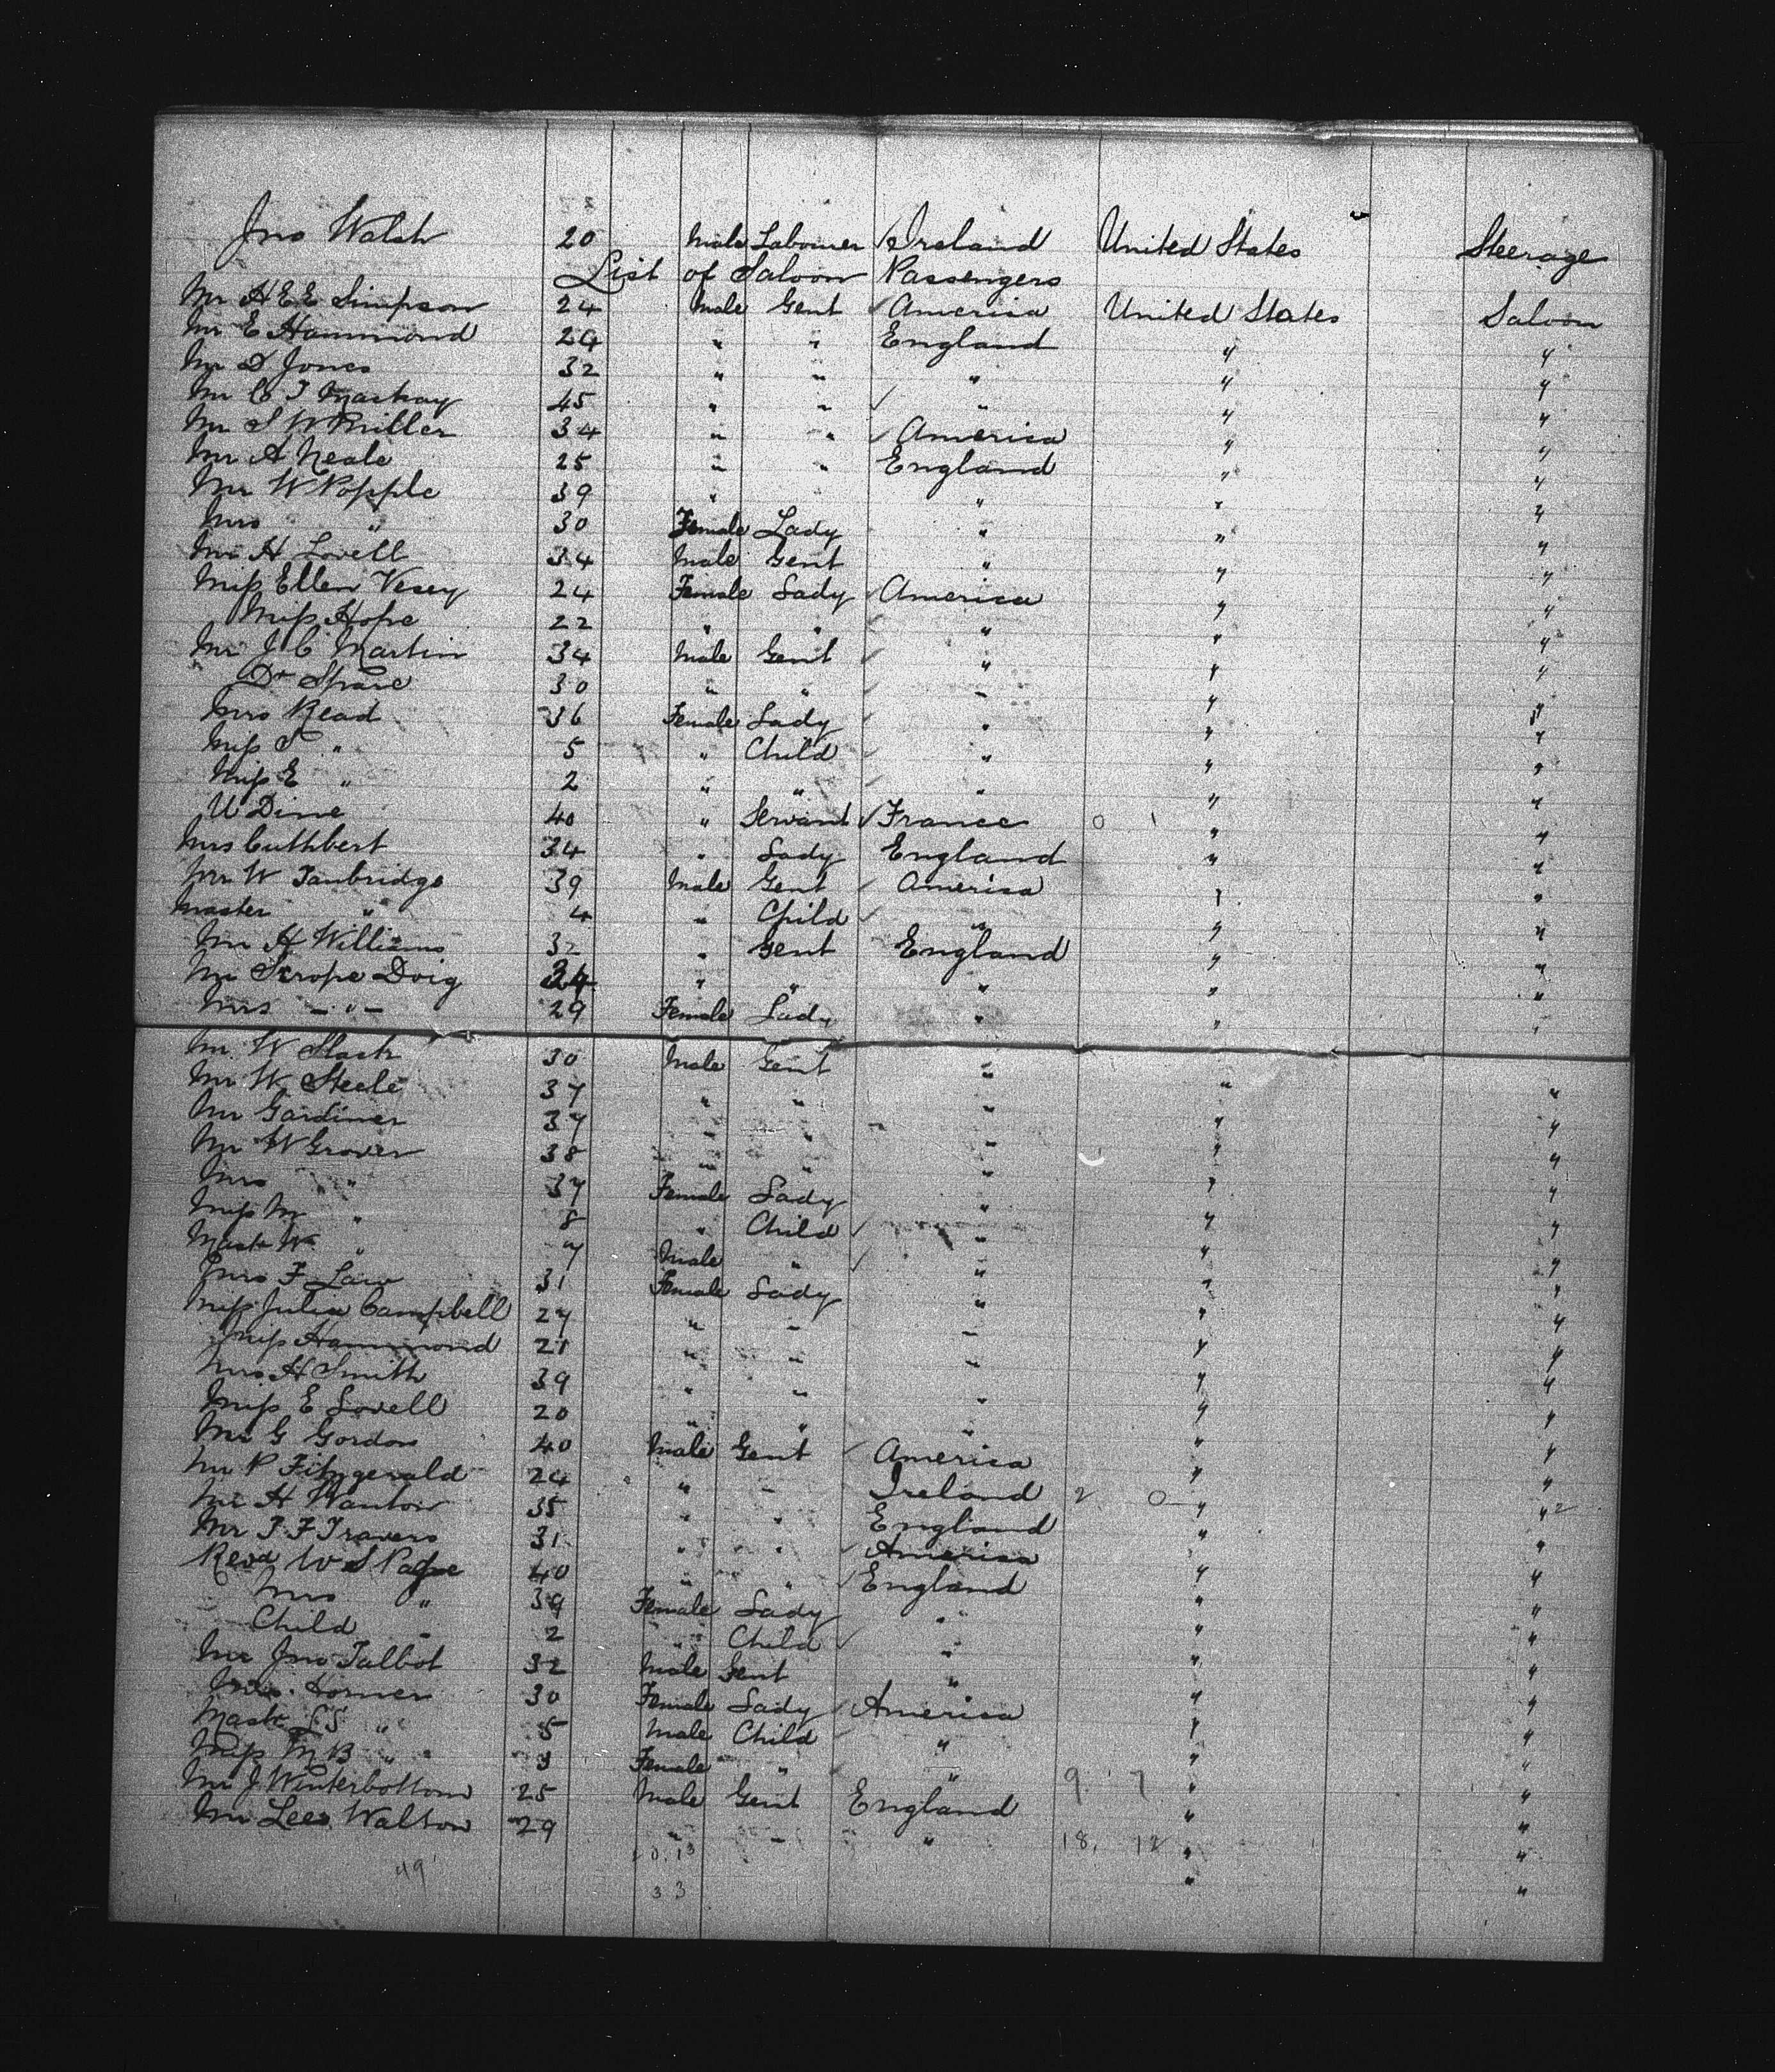 Jno Walsh 20 Male Labourer ✓ Ireland United States Steerage
List of Saloon Passengers
Mr H E E Simpson 24 Male Gent ✓ America United States Saloon
Mr E Hammond 24 " " England " "
Mr D Jones 32 " " " " "
Mr C T Mackay 45 " " ✓ " " "
Mr S W Miller 34 " " ✓ America " "
Mr A Neale 25 " " England " "
Mr W Popple 39 " " " "
Mrs " 30 Female Lady " " "
Mr H Lovell 34 Male Gent " " "
Miss Ellen Vesey 24 Female Lady ✓ America " "
Miss Hope 22 " " ✓ " " "
Mr J C Martin 34 Male Gent ✓ " " "
" Dr Spare 30 " " ✓ " " "
Mrs Read 36 Female Lady ✓ " " "
Miss " 5 " Child ✓ " " "
Miss E " 2 " " ✓ " " "
U Dime 40 " Servant ✓ France " "
Mrs Cuthbert 34 " Lady England " "
Mr W Tanbridge 39 Male Gent ✓ America " "
Master " 4 " Child ✓ " " "
Mr H Williams 32 " Gent England " "
Mr Scrope Doig 34 " " " " "
Mrs - " - 29 Female Lady " " "
Mr W 30 Male Gent " " "
Mr W Steele 37 " " " " "
Mr Gardiner 37 " " " " "
Mr W Grover 38 " " " " "
Mrs " 37 Female Lady " " "
Miss M " 8 " Child ✓ " " "
Mastr Wm " 7 Male " ✓ " " "
Mrs F Law 31 Female Lady " " "
Miss Julia Campbell 27 " " " " "
Miss Hammond 21 " " " " "
Mrs H Smith 39 " " " " "
Miss E Lovell 20 " " " " "
Mr G Gordon 40 Male Gent ✓ America " "
Mr P Fitzgerald 24 " " Ireland 2 0 " "
Mr H Wanton 35 " " England " "
Mr T F Travers 31 " " ✓ America " "
Revd W S Page 40 " " ✓ England " "
Mrs " 39 Female Lady " " "
Child " 2 " Child ✓ " " "
Mr Jno Talbot 32 Male Gent " " "
Mrs Horner 30 Female Lady ✓ America " "
Mastr L S " 5 Male Child ✓ " " "
Miss M B " 3 Female " ✓ " " "
Mr J Winterbottom 25 Male Gent England 9 7 " "
Mr Lees Walton 29 " " " 18. 12 " "
49
33